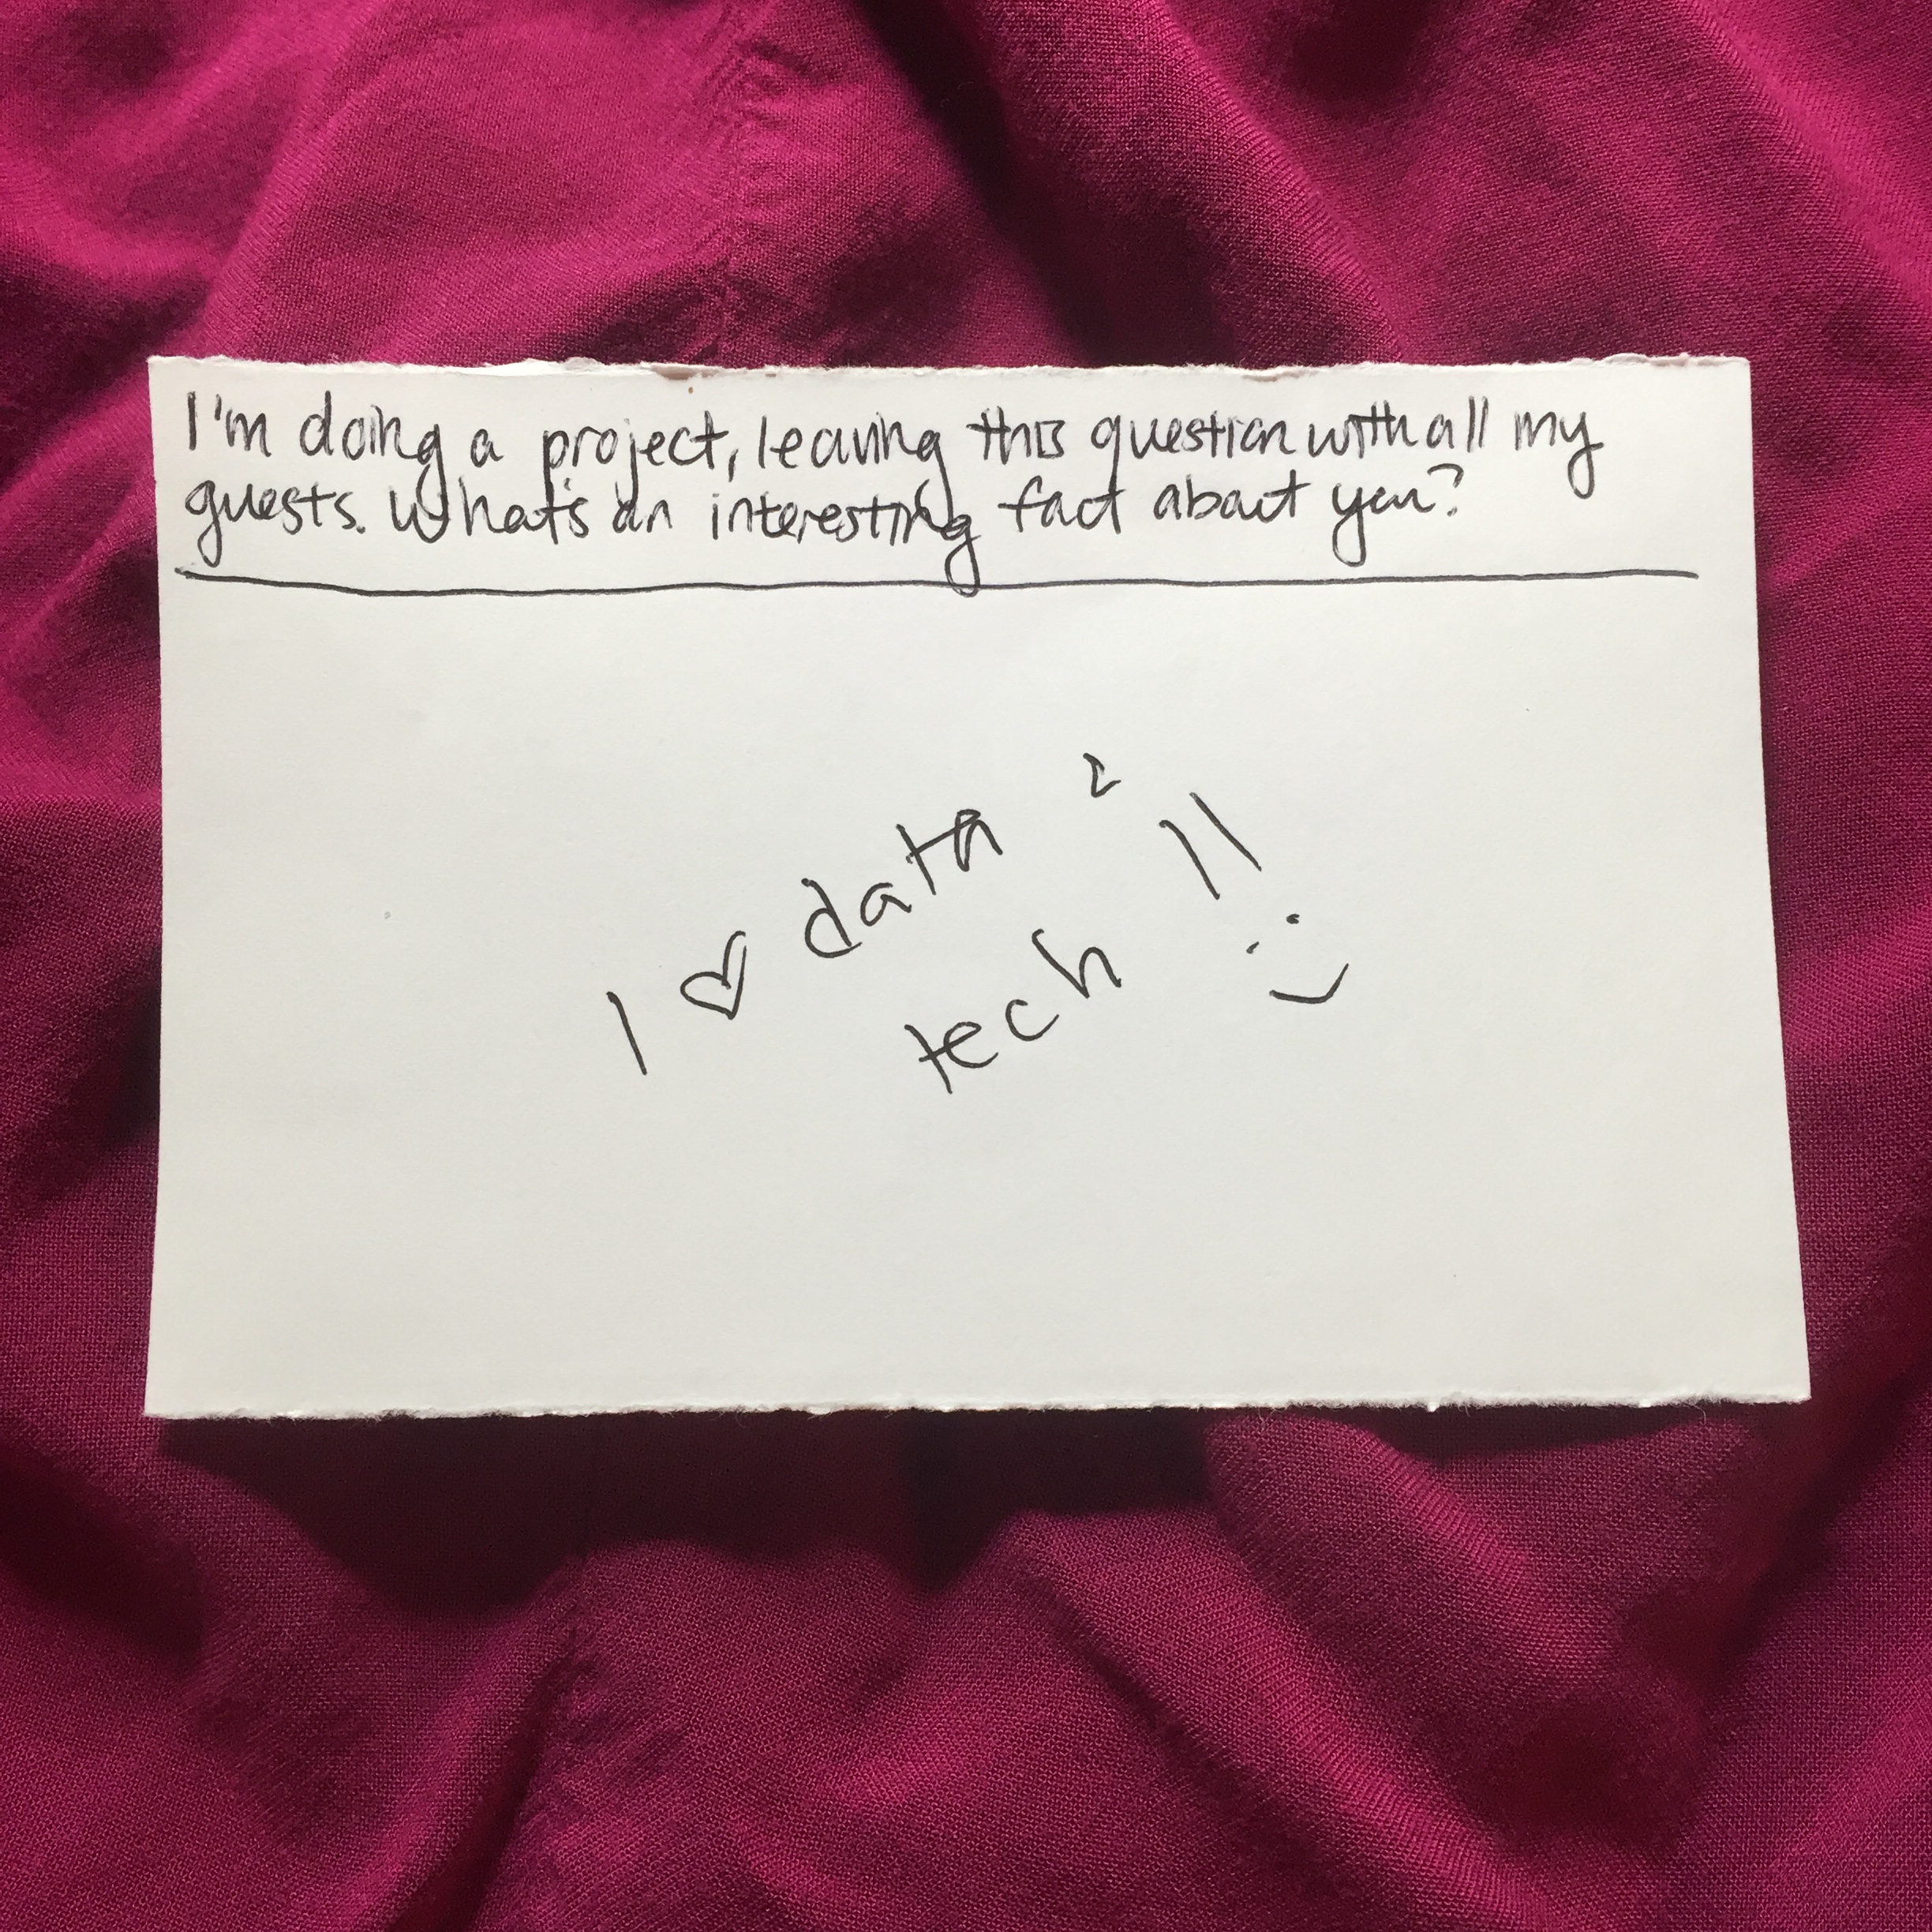 I'm doing a project, leaving this question with all my
guests. What's an interesting fact about you?
I ♡ data &
tech !!
:)